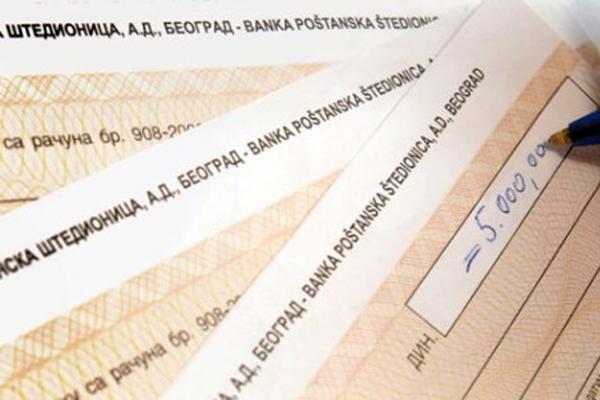 ШТЕДИОНИЦА, А.Д., БЕОГРАД - BANKA POŠTANSKA ŠTEDIONICA
са рачуна бр. 908-200
НСКА ШТЕДИОНИЦА, А.Д., БЕОГРАД - BANKA POŠTANSKA ŠTEDIONICA, A
са рачуна бр. 908-20
А, А.Д., БЕОГРАД - BANKA POŠTANSKA ŠTEDIONICA, A.D., BEOGRAD
=5.000,00
ДИН.